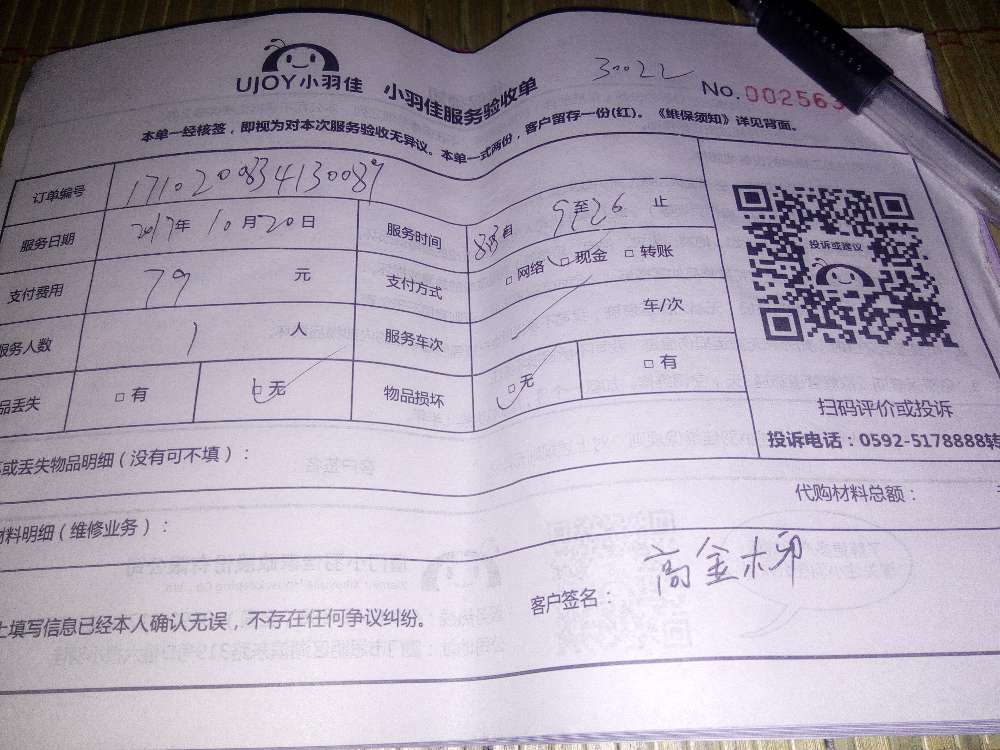 UJOY小羽佳 小羽佳服务验收单 30022 No.002563
本单一经核签，即视为对本次服务验收无异议。本单一式两份，客户留存一份(红)。《维保须知》详见背面。
订单编号 171020083413008
服务日期 2017年10月20日 服务时间 833自 926 止
支付费用 79 元 支付方式 □网络 □现金 □转账
服务人数 1 人 服务车次 车/次
品丢失 □有 □无 物品损坏 □无 □有
投诉或建议
扫码评价或投诉
投诉电话：0592-5178888转
或丢失物品明细（没有可不填）：
代购材料总额：
材料明细（维修业务）：
客户签名：高金柳
上填写信息已经本人确认无误，不存在任何争议纠纷。